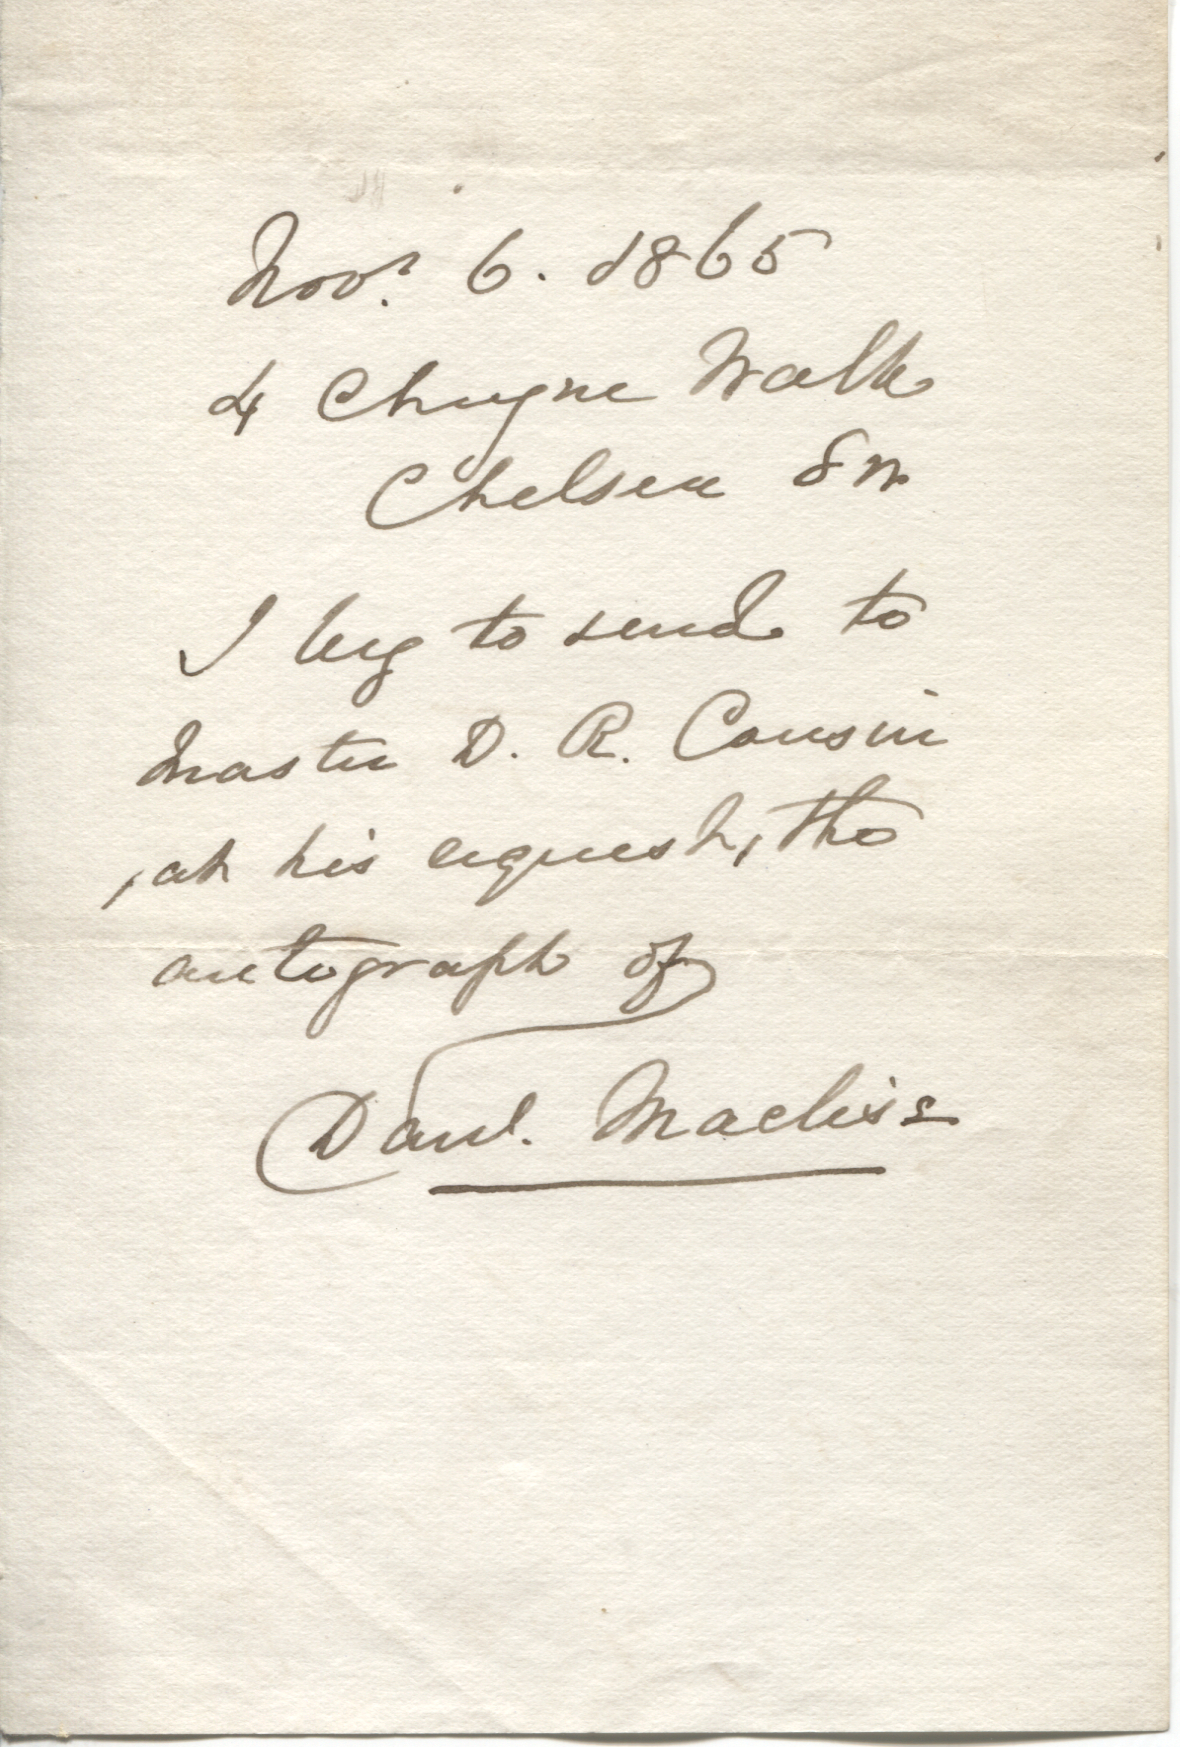 Novr. 6. 1865
4 Cheyne Walk
Chelsea SW
I beg to send to
Master D. R. Cousin
, at his request, the
autograph of
Danl. Maclise